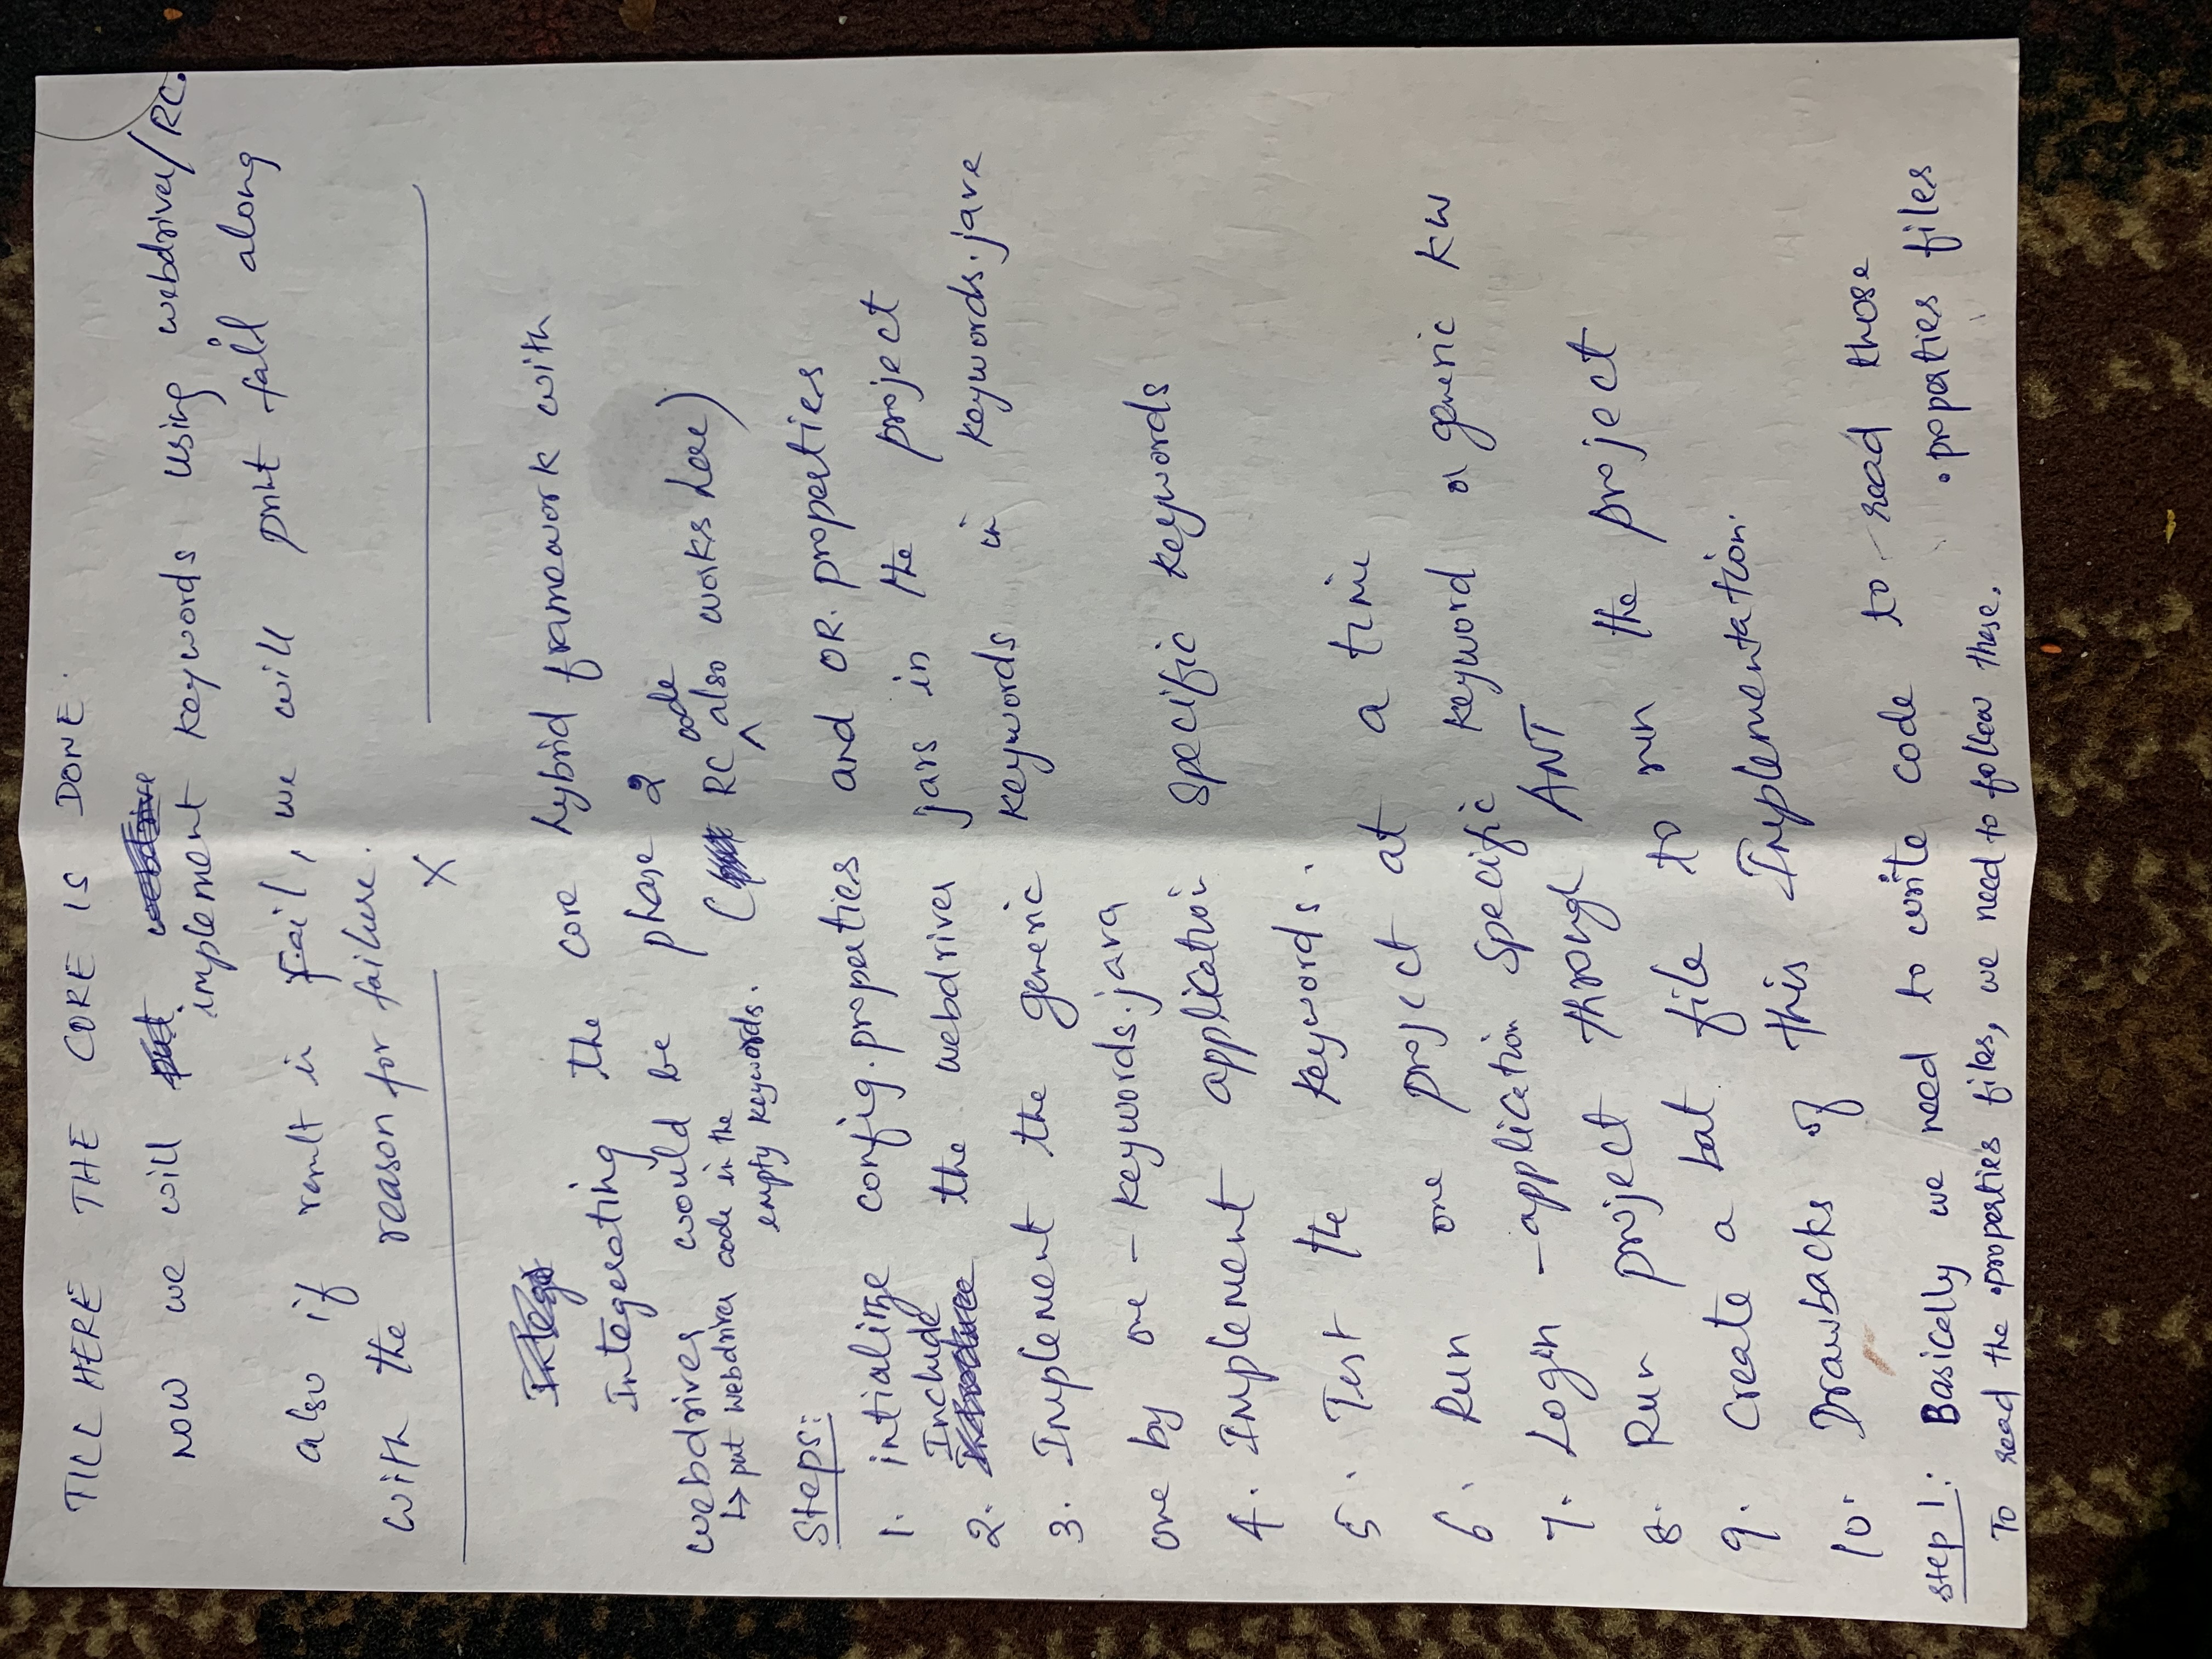 TILL HERE THE CORE IS DONE.
NOW we will implement keywords using webdriver/RC.
also if result is Fail, we will print fail along
with the reason for failure.
X
Integerating the core hybrid framework with
webdriver would be phase 2
↳ put webdriver code in the
empty keywords. (RC code also works here)
Steps:
1. intialize config.properties and OR.properties
2. Include the webdriver jars in the project
3. Implement the generic keywords in keywords.java
one by one - keywords.java
4. Implement application specific keywords
5. Test the keywords.
6. Run one project at a time
7. Login - application specific keyword or generic KW
8. Run project through ANT
9. Create a bat file to run the project
10. Drawbacks of this Implementation.
step 1: Basically we need to write code to read those
.properties files
To read the .properties files, we need to follow these.